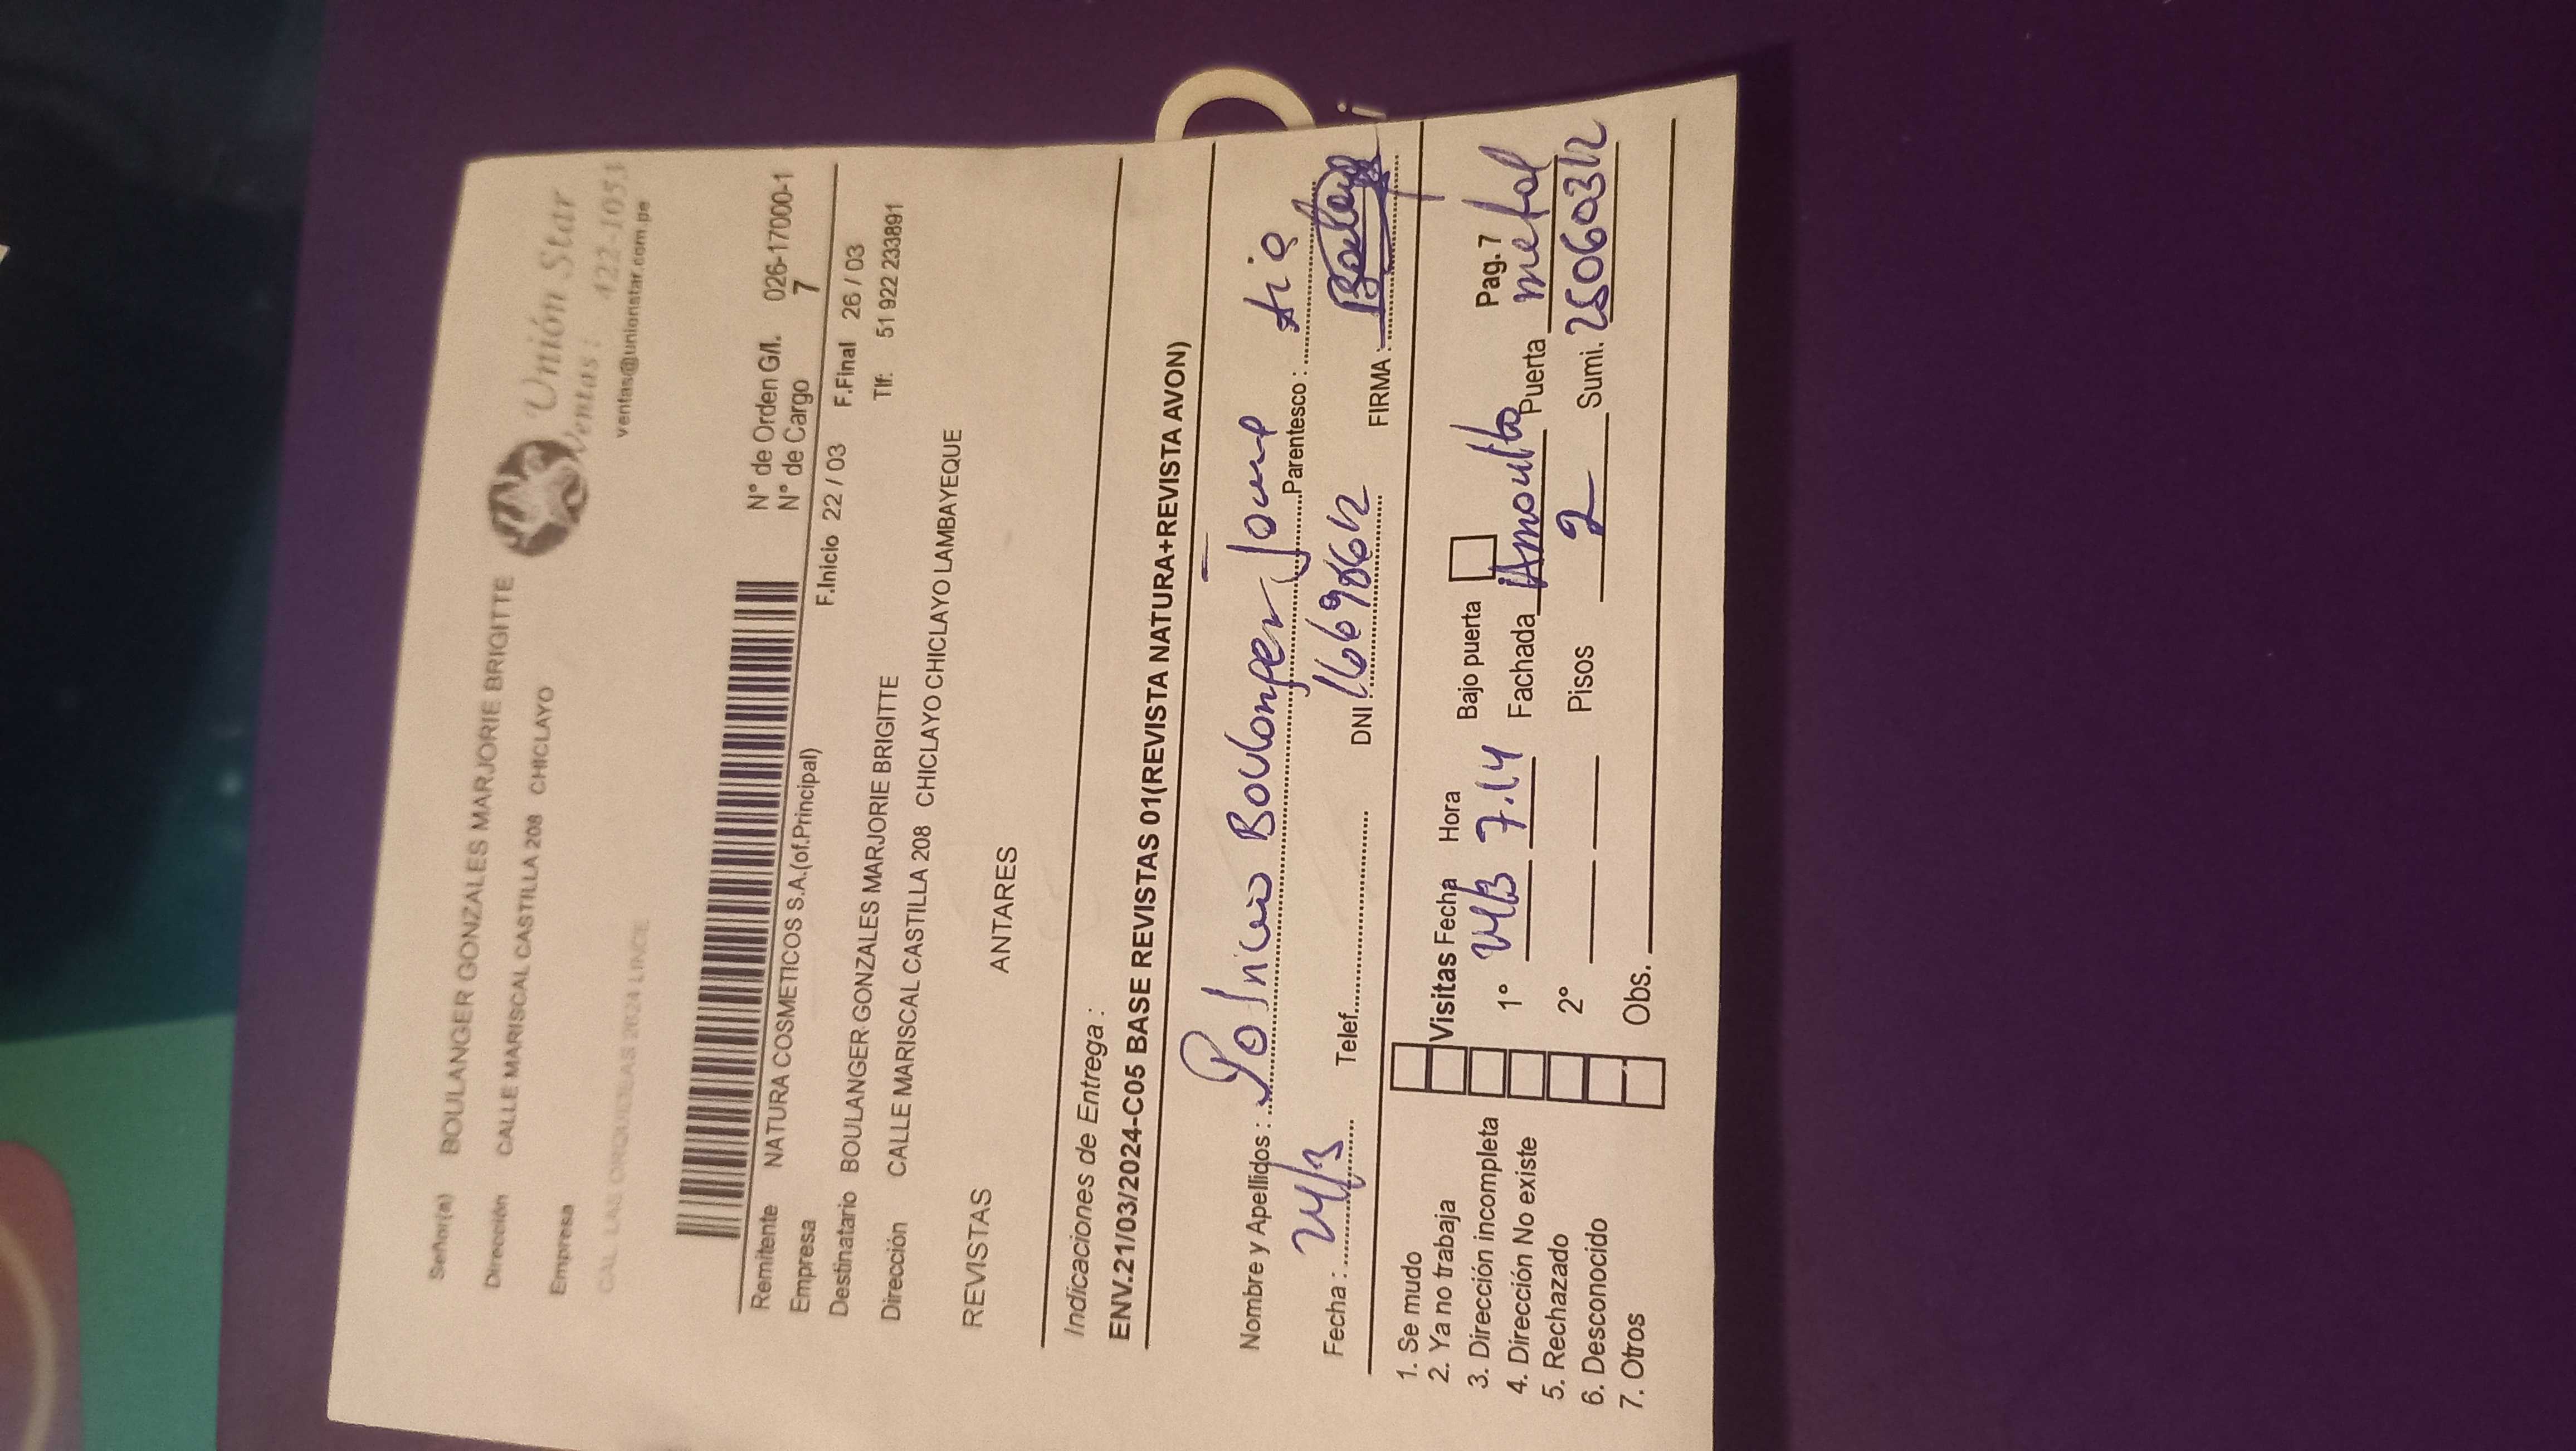 Señor(a) BOULANGER GONZALES MARJORIE BRIGITTE
Dirección CALLE MARISCAL CASTILLA 208 CHICLAYO
Empresa
CAL. LAS ORQUIDEAS 2624 LINCE
Unión Star
Ventas: 422-1053
ventas@unionstar.com.pe
N° de Orden G/l. 026-17000-1
N° de Cargo 7
Remitente NATURA COSMETICOS S.A.(of.Principal)
Empresa
F.Inicio 22 / 03 F.Final 26 / 03
Destinatario BOULANGER GONZALES MARJORIE BRIGITTE
Tlf: 51 922 233891
Dirección CALLE MARISCAL CASTILLA 208 CHICLAYO CHICLAYO LAMBAYEQUE
REVISTAS ANTARES
Indicaciones de Entrega :
ENV.21/03/2024-C05 BASE REVISTAS 01(REVISTA NATURA+REVISTA AVON)
Nombre y Apellidos : Boulanger Parentesco : tia
Fecha : 24/3 Telef. DNI 16698612 FIRMA :
1. Se mudo
2. Ya no trabaja
3. Dirección incompleta
4. Dirección No existe
5. Rechazado
6. Desconocido
7. Otros
Visitas Fecha Hora Bajo puerta Pag. 7
1° 24/3 7.14 Fachada Puerta metal
2° Pisos 2 Sumi. 25060312
Obs.
i